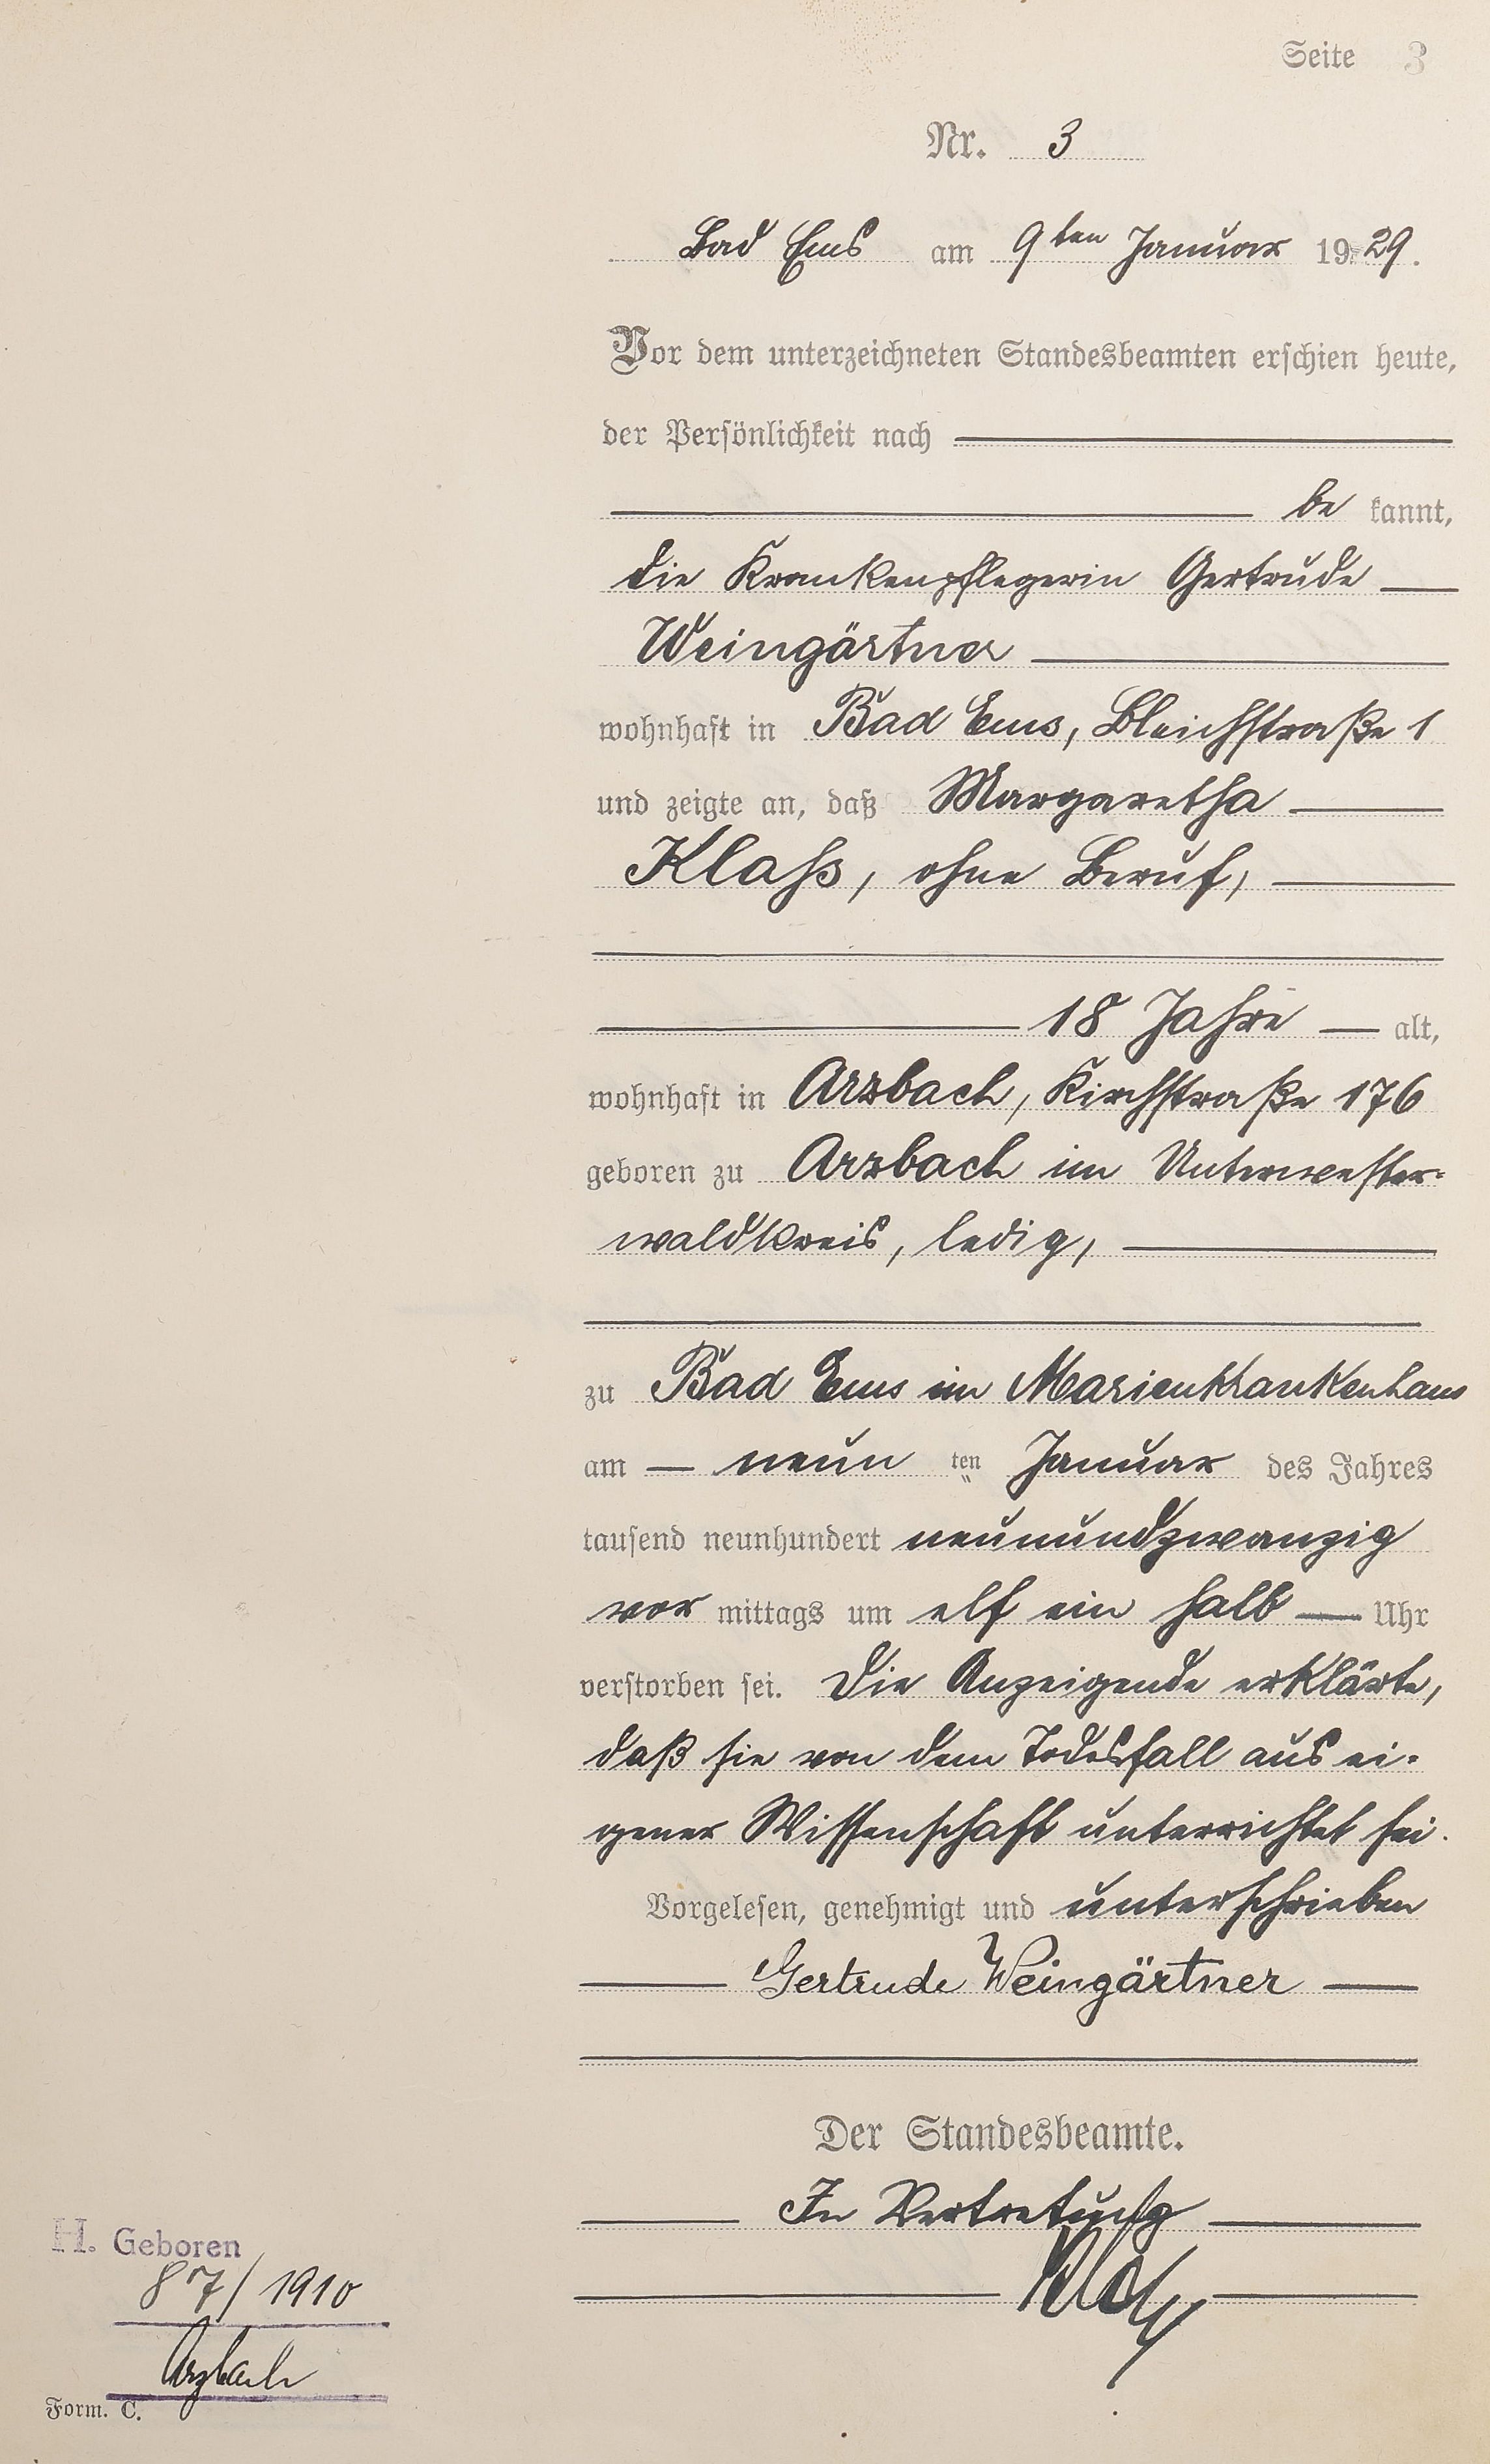 Seite 3
Nr. 3
Bad Ems am 9ten Januar 1929.
Vor dem unterzeichneten Standesbeamten erschien heute,
der Persönlichkeit nach
be kannt,
die Krankenpflegerin Gertrude
Weingärtner
wohnhaft in Bad Ems, Bleichstraße 1
und zeigte an, daß Margaretha
Klaß, ohne Beruf,
18 Jahre alt,
wohnhaft in Arzbach, Kirchstraße 176
geboren zu Arzbach im Unterwester-
waldkreis, ledig,
zu Bad Ems im Marienkrankenhaus
am neun ten Januar des Jahres
tausend neunhundert neunundzwanzig
vor mittags um elf ein halb Uhr
verstorben sei. Die Anzeigende erklärte,
daß sie von dem Todesfall aus ei-
gener Wissenschaft unterrichtet sei.
Vorgelesen, genehmigt und unterschrieben
Gertrude Weingärtner
Der Standesbeamte.
In Vertretung
H. Geboren
87/1910
Arzbach
Form. C.